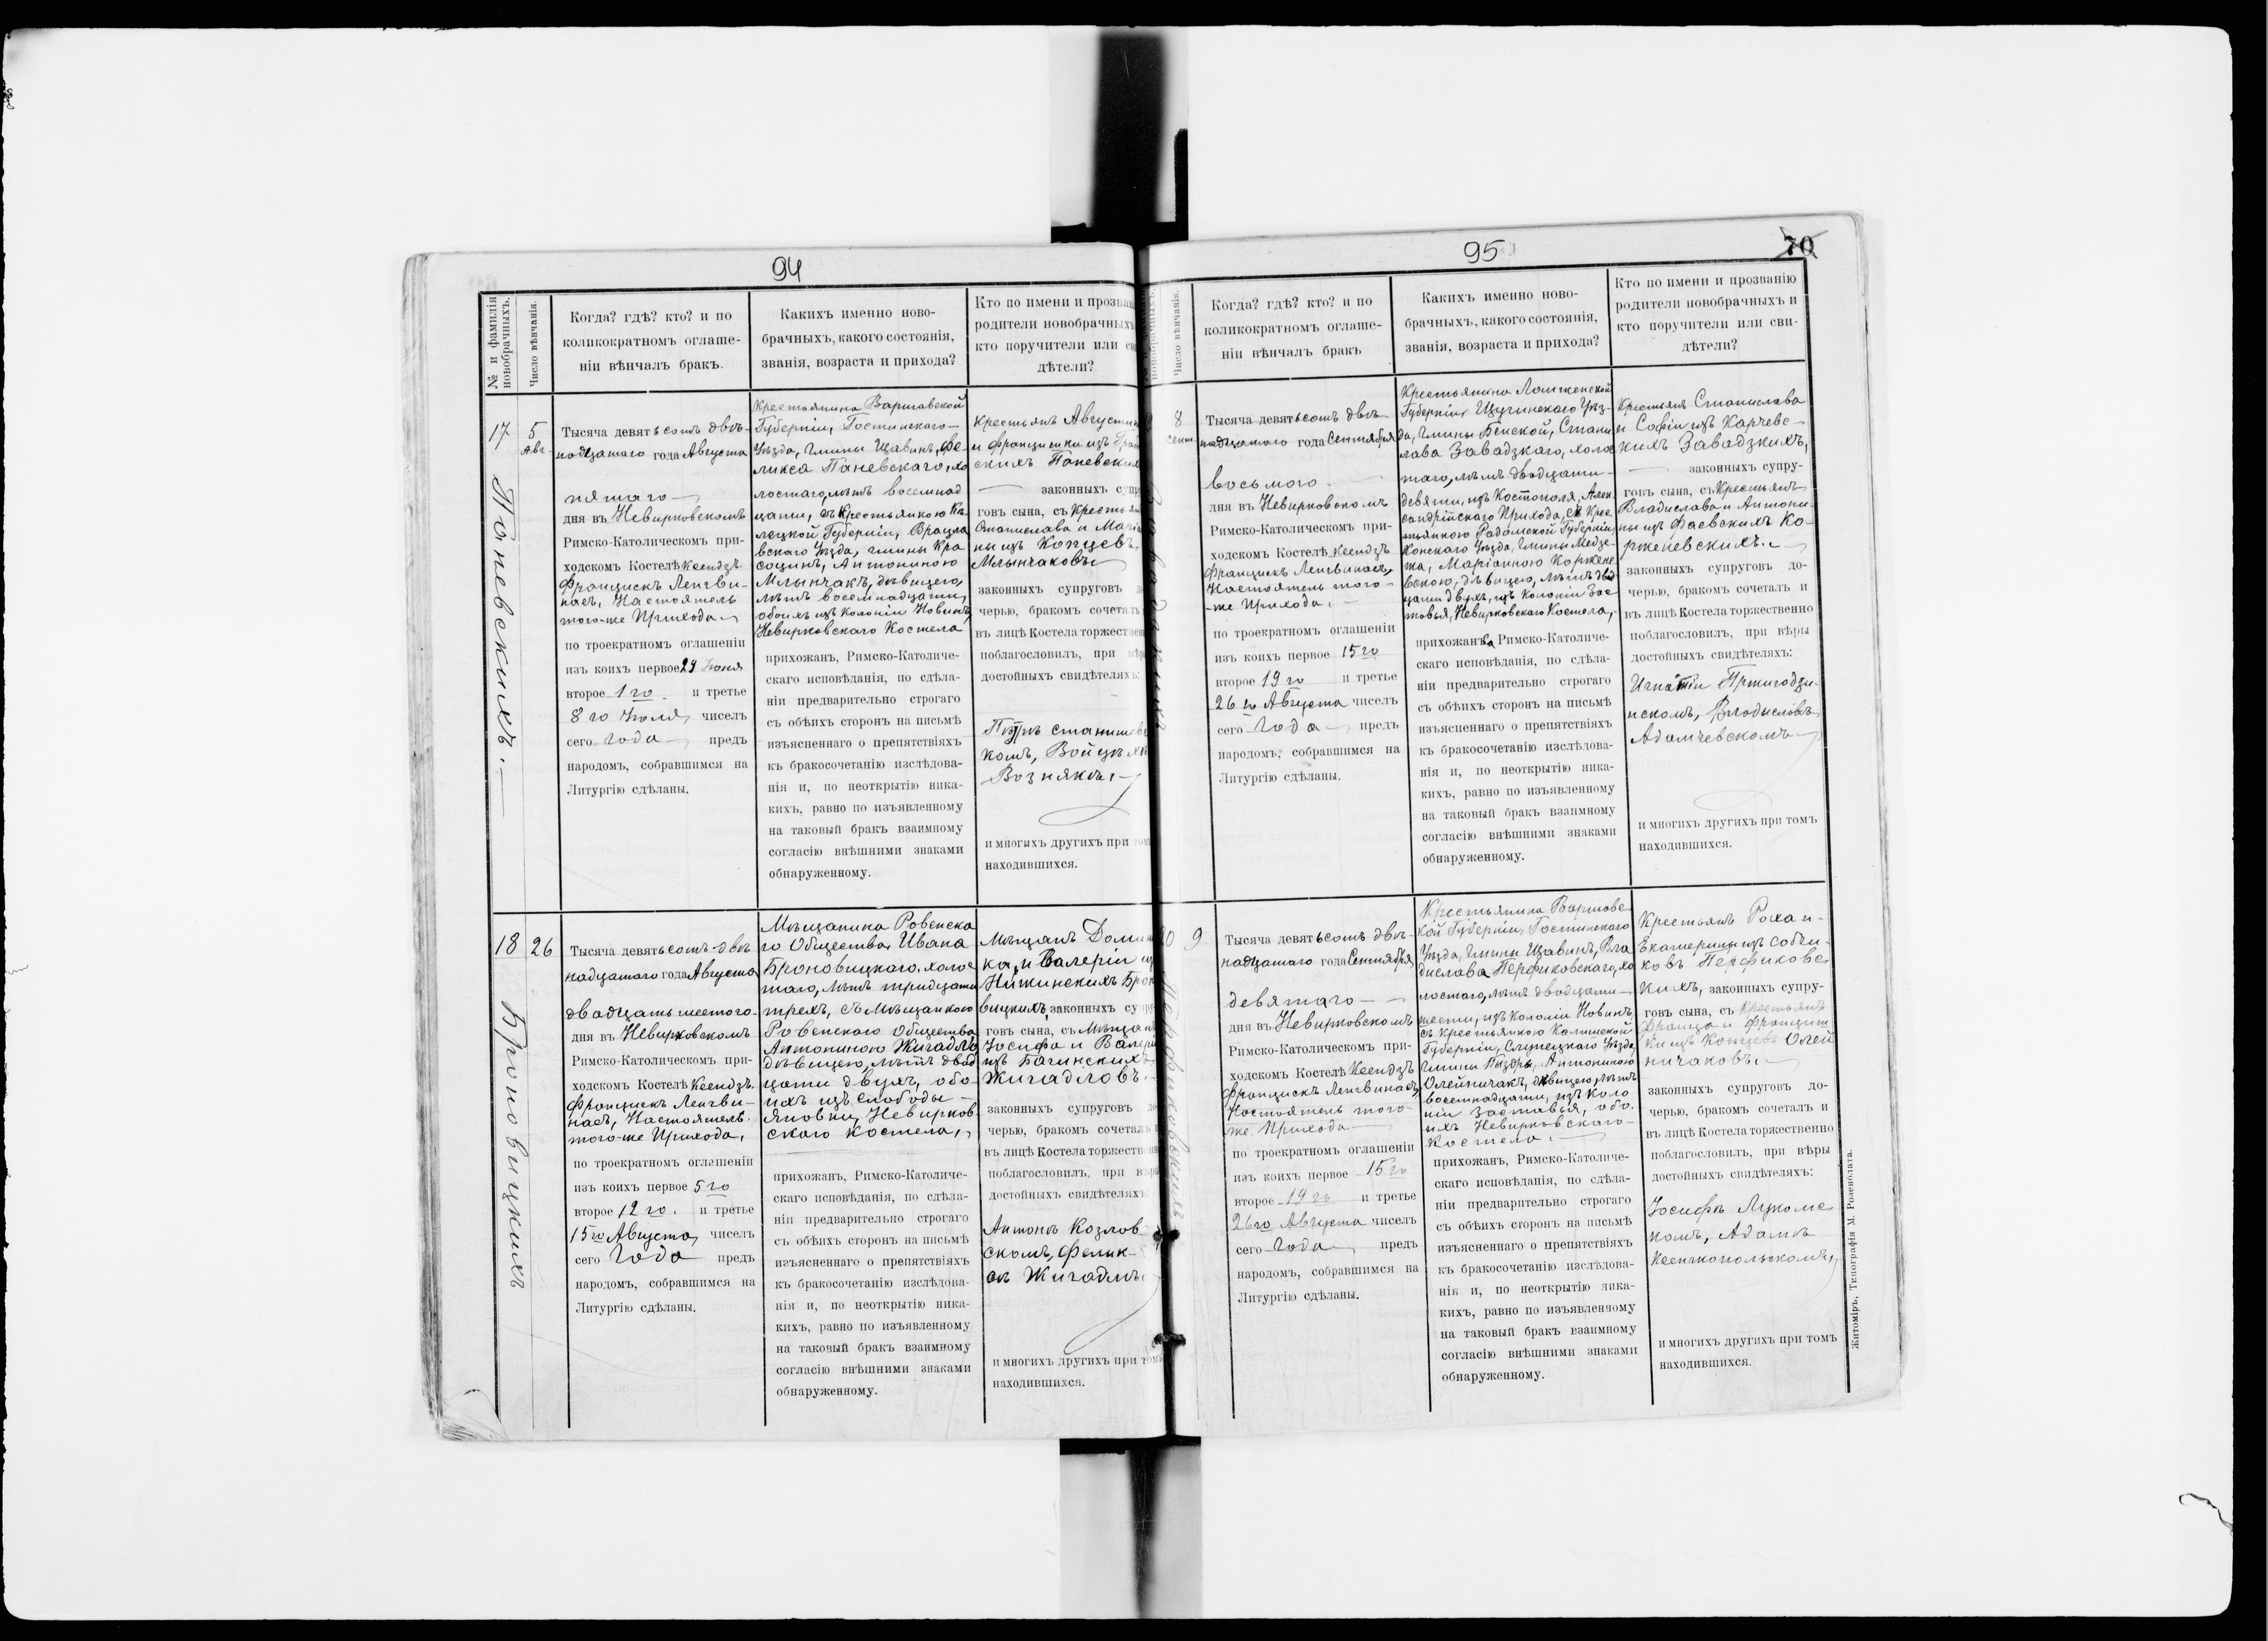 94
№ и фамилія
новобрачныхъ.
Число вѣнчанія.
Когда? гдѣ? кто? и по
коликократномъ оглаше-
ніи вѣнчалъ бракъ.
Какихъ именно ново-
брачныхъ, какого состоянія,
званія, возраста и прихода?
Кто по имени и прозва
родители новобрачныхъ
кто поручители или
дѣтели?
17
5
Авг.
Поневскихъ.
Тысяча девятьсотъ двѣ-
надцатаго года Августа
пятаго
дня въ Невирковскомъ
Римско-Католическомъ при-
ходскомъ Костелѣ Ксендзъ
Францискъ Ленгви-
насъ, Настоятель
того-же Прихода
по троекратномъ оглашеніи
изъ коихъ первое 29 Іюня
второе 1го и третье
8го Іюля чиселъ
сего года предъ
народомъ, собравшимся на
Литургію сдѣланы.
Крестьянина Варшавской
Губерніи, Гостинскаго
Уѣзда, Гмины Щавинъ, Фе-
ликса Паневскаго, хо
лостаго, лѣтъ восемнад
цати, съ Крестьянкою Кѣ-
лецкой Губерніи, Врацла
вскаго Уѣзда, гмины Кра
социнъ, Антониною
Млынчакъ, дѣвицею,
лѣтъ восемнадцати,
обоихъ изъ Колоніи Новинъ,
Невирковскаго Костела
прихожанъ, Римско-Католиче-
скаго исповѣданія, по сдѣла-
ніи предварительно строгаго
съ обѣихъ сторонъ на письмѣ
изъясненнаго о препятствіяхъ
къ бракосочетанію изслѣдова-
нія и, по неоткрытію ника-
кихъ, равно по изъявленному
на таковый бракъ взаимному
согласію внѣшними знаками
обнаруженному.
Крестьянъ Августина
и Францишки изъ
скихъ Паневскихъ
законныхъ супр
говъ сына, съ Крестьян
Станислава и Марiан
ны изъ Копцевъ
Млынчаковъ
законныхъ супруговъ
черью, бракомъ сочеталъ
въ лицѣ Костела торжествен
поблагословилъ, при вѣр
достойныхъ свидѣтеляхъ:
Петрѣ Станишевс
комъ, Войцѣхѣ
Вознякъ,
и многихъ другихъ при томъ
находившихся.
18
26
Броновицкихъ
Тысяча девятьсотъ двѣ
надцатаго года Августа
двадцать шестого
дня въ Невирковскомъ
Римско-Католическомъ при-
ходскомъ Костелѣ Ксендзъ
Францискъ Ленгви-
насъ, Настоятель
того-же Прихода,
по троекратномъ оглашеніи
изъ коихъ первое 5го
второе 12го. и третье
15го Августа чиселъ
сего года предъ
народомъ, собравшимся на
Литургію сдѣланы.
Мѣщанина Ровенска
го Общества, Ивана
Броновицкаго, холос
таго, лѣтъ тридцати
трехъ, съ Мѣщанкою
Ровенскаго Общества
Антониною Жигадло
дѣвицею, лѣтъ двад
цати двухъ, обо-
ихъ изъ Слободы
Яновки, Невирков-
скаго Костела,
прихожанъ, Римско-Католиче-
скаго исповѣданія, по сдѣла-
ніи предварительно строгаго
съ обѣихъ сторонъ на письмѣ
изъясненнаго о препятствіяхъ
къ бракосочетанію изслѣдова-
нія и, по неоткрытію ника-
кихъ, равно по изъявленному
на таковый бракъ взаимному
согласію внѣшними знаками
обнаруженному.
Мѣщанъ Домин
ка и Валеріи из
Нижинскихъ Броно
вицкихъ, законныхъ супру
говъ сына, съ Мѣщанъ
Іосифа и Валері
изъ Багинскихъ
Жигадловъ.
законныхъ супруговъ до
черью, бракомъ сочеталъ
въ лицѣ Костела торжествен
поблагословилъ, при вѣр
достойныхъ свидѣтеляхъ
Антонѣ Козлов
скомъ, Феликсѣ
Жигадлѣ.
и многихъ другихъ при томъ
находившихся.
95
70
новобрачныхъ.
Число вѣнчанія.
Когда? гдѣ? кто? и по
коликократномъ оглаше-
ніи вѣнчалъ бракъ
Какихъ именно ново-
брачныхъ, какого состоянія,
званія, возраста и прихода?
Кто по имени и прозванію
родители новобрачныхъ и
кто поручители или сви-
дѣтели?
8
Сент.
Завадзкихъ
Тысяча девятьсотъ двѣ
надцатаго года Сентября
восьмого
дня въ Невирковскомъ
Римско-Католическомъ при-
ходскомъ Костелѣ Ксендзъ
Францискъ Ленгвинасъ,
Настоятель того-
же Прихода,
по троекратномъ оглашеніи
изъ коихъ первое 15го
второе 19го и третье
26го Августа чиселъ
сего года предъ
народомъ, собравшимся на
Литургію сдѣланы.
Крестьянина Ломженской
Губерніи, Щучинскаго Уѣз-
да, Гмины Бенской, Стани
лава Завадзкаго, холос
таго, лѣтъ двадцати
девяти, изъ Костополя, Алек-
сандрійскаго Прихода, съ Крес
тьянкою Радомской Губерніи,
Конскаго Уѣзда, Гмины Медзе-
жа, Маріанною Коржене
вскою, дѣвицею, лѣтъ двад
цати двухъ, изъ Колоніи Зас
тавья, Невирковскаго Костела,
прихожанъ, Римско-Католиче-
скаго исповѣданія, по сдѣла-
ніи предварительно строгаго
съ обѣихъ сторонъ на письмѣ
изъясненнаго о препятствіяхъ
къ бракосочетанію изслѣдова-
нія и, по неоткрытію ника-
кихъ, равно по изъявленному
на таковый бракъ взаимному
согласію внѣшними знаками
обнаруженному.
Крестьянъ Станислава
и Софіи изъ Карчевс-
кихъ Завадзкихъ,
законныхъ супру-
говъ сына, съ Крестьянъ
Владислава и Антони-
ны изъ Фаевскихъ Ко-
рженевскихъ.
законныхъ супруговъ до-
черью, бракомъ сочеталъ и
въ лицѣ Костела торжественно
поблагословилъ, при вѣры
достойныхъ свидѣтеляхъ:
Игнатіи Пржигодзи-
нскомъ, Владиславѣ
Адамчевскомъ
и многихъ другихъ при томъ
находившихся.
20
9
Перфиковскихъ
Тысяча девятьсотъ двѣ-
надцатаго года Сентября
девятаго
дня въ Невирковскомъ
Римско-Католическомъ при-
ходскомъ Костелѣ Ксендзъ
Францискъ Ленгвинасъ,
Настоятель того-
же Прихода
по троекратномъ оглашеніи
изъ коихъ первое 15го
второе 19го и третье
26го Августа чиселъ
сего года предъ
народомъ, собравшимся на
Литургію сдѣланы.
Крестьянина Варшавс
кой Губерніи, Гостинскаго
Уѣзда, Гмины Щавинъ, Вла
дислава Перфиковскаго, хо
лостаго, лѣтъ двадцати
шести, изъ Колоніи Новинъ,
съ Крестьянкою Калишской
Губерніи, Слупецкаго Уѣзда,
Гмины Пыздры, Антониною
Олейничакъ, дѣвицею, лѣтъ
восемнадцати, изъ Коло
ніи Заставья, обо-
ихъ Невирковскаго
Костела.
прихожанъ, Римско-Католиче-
скаго исповѣданія, по сдѣла-
ніи предварительно строгаго
съ обѣихъ сторонъ на письмѣ
изъясненнаго о препятствіяхъ
къ бракосочетанію изслѣдова-
нія и, по неоткрытію ника-
кихъ, равно по изъявленному
на таковый бракъ взаимному
согласію внѣшними знаками
обнаруженному.
Крестьянъ Роха и
Екатерины изъ Собчи-
ковъ Перфиковс
кихъ, законныхъ супру-
говъ сына, съ Крестьянъ
Франца и Францiш
ки изъ Копцевъ Олей
ничаковъ.
законныхъ супруговъ до-
черью, бракомъ сочеталъ и
въ лицѣ Костела торжественно
поблагословилъ, при вѣры
достойныхъ свидѣтеляхъ:
Іосифѣ Лукомс
комъ, Адамѣ
Ксенжопольскомъ,
и многихъ другихъ при томъ
находившихся.
Житоміръ, Типографія М. Розенблата.